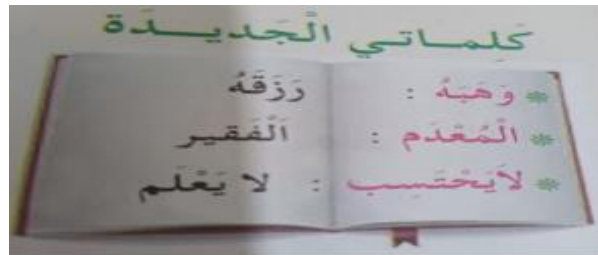 كَلِمـــاتي الْجَديـــدَة
* وَهَبَهُ : رَزَقَهُ
* الْمُعْدَم : اَلْفَقير
* لاَيَحْتَسِب : لا يَعْلَم